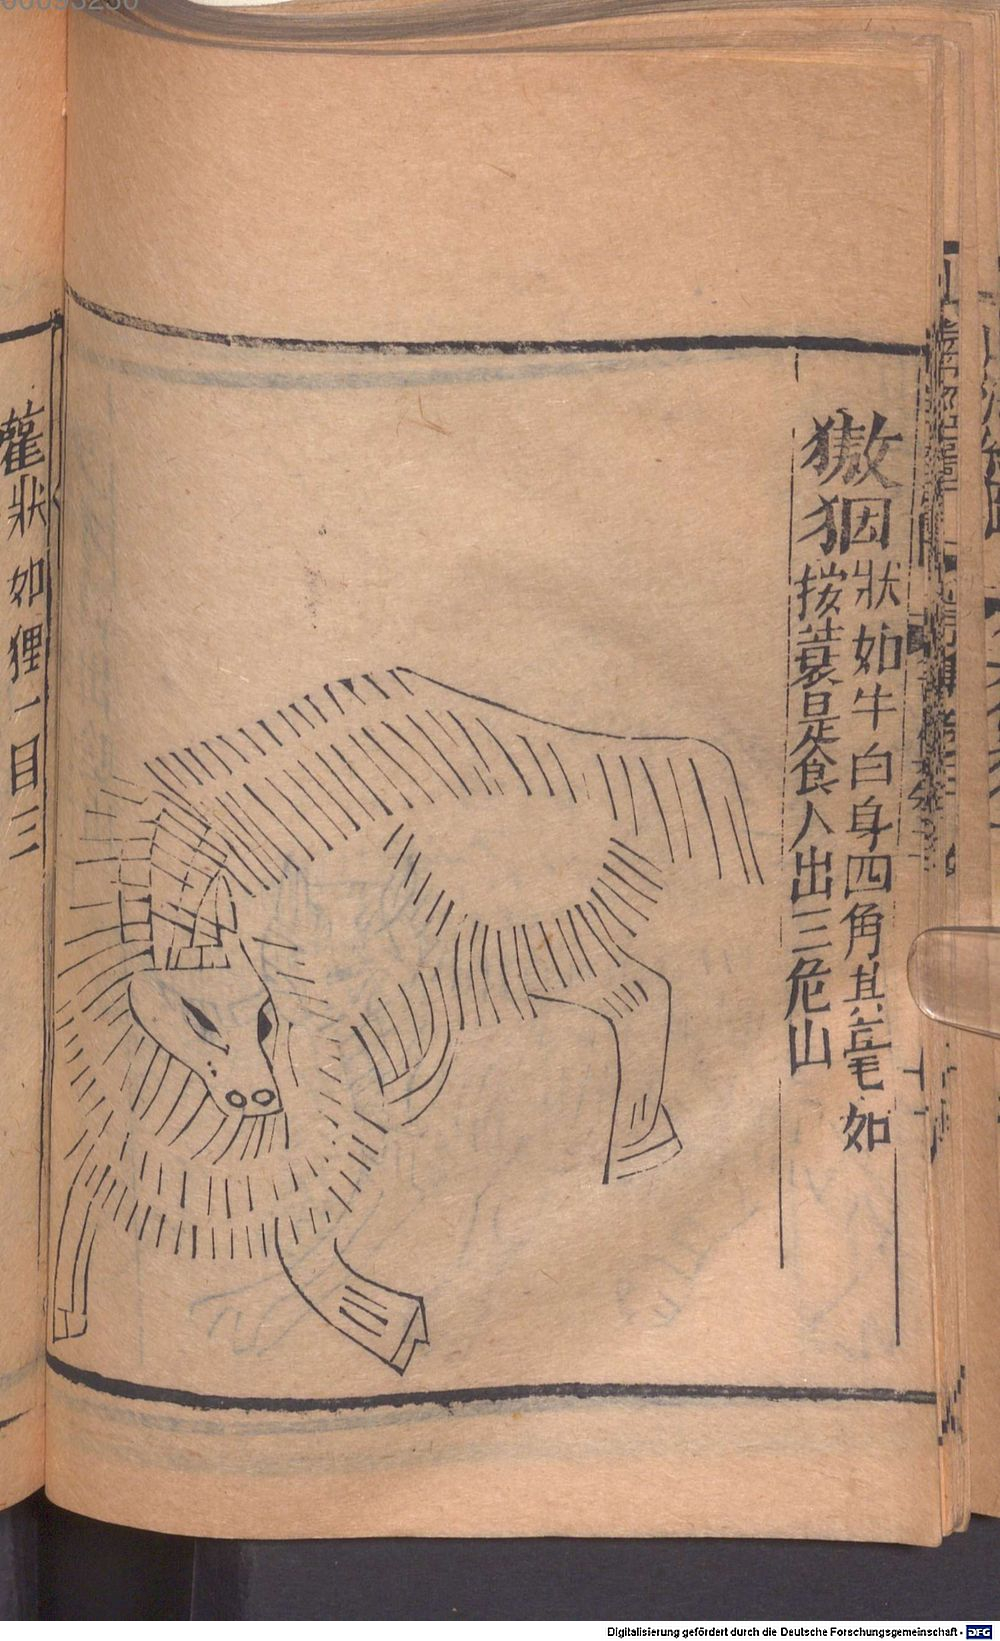 00093250
獓𤝱
狀如牛白身四角其毫如
披蓑是食人出三危山
讙狀如狸一目三
Digitalisierung gefördert durch die Deutsche Forschungsgemeinschaft - DFG